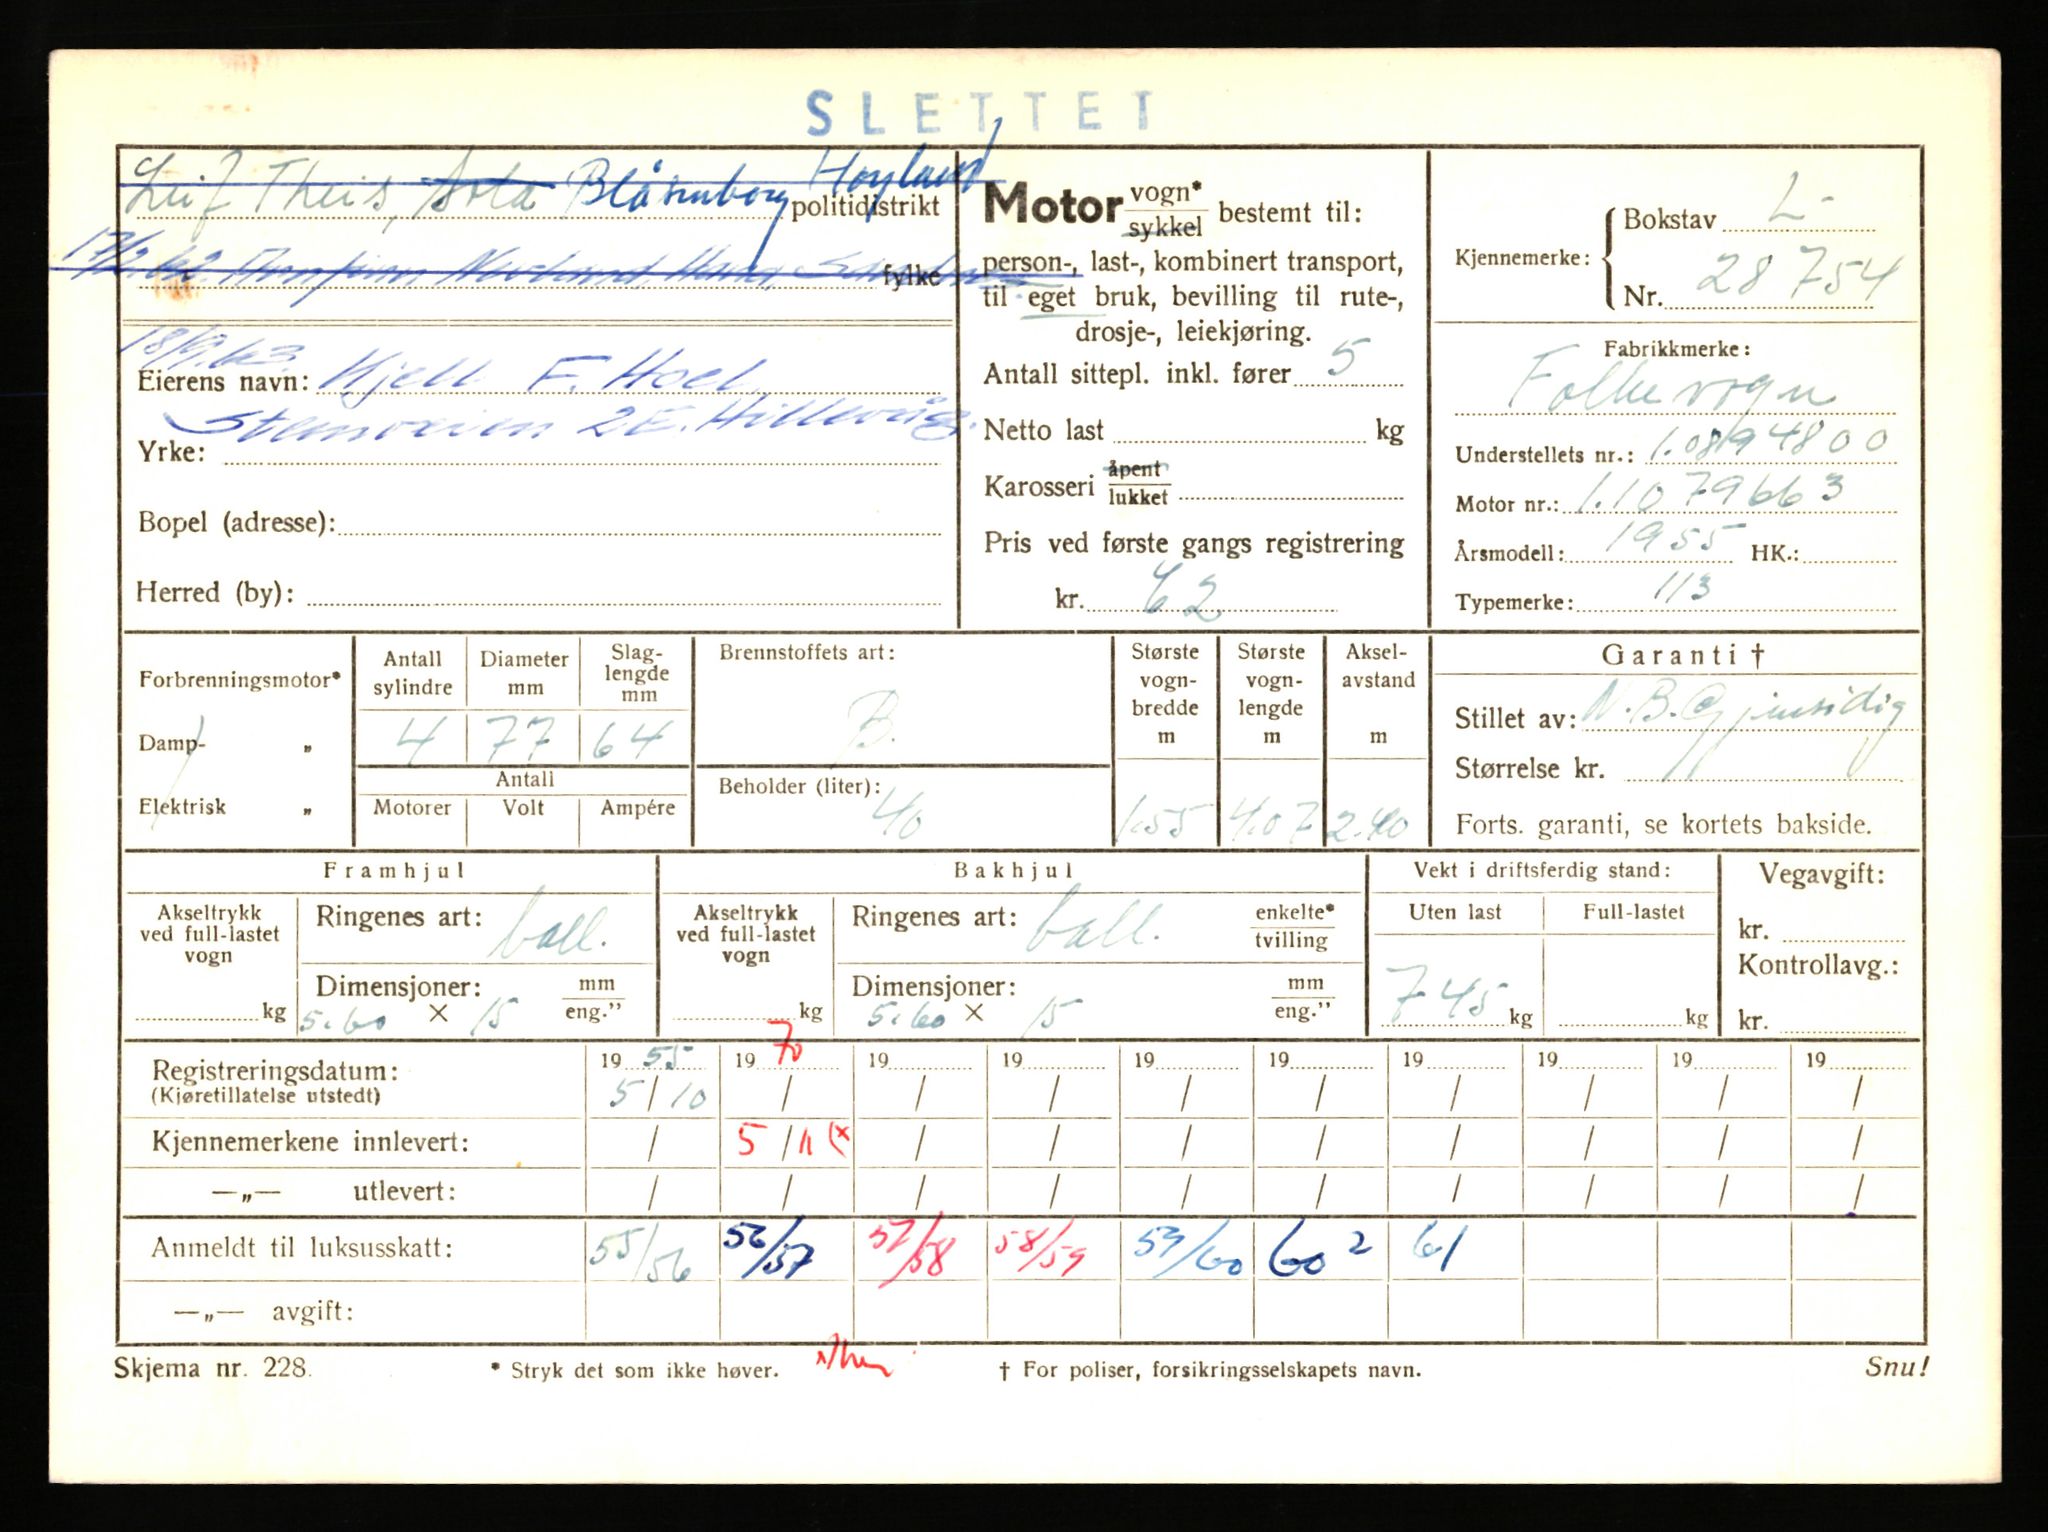 SLETTET
Leif Theis, Sola Blåkuborg Høyland
politidistrikt
17/2.62.
fylke
18/9.63.
Eierens navn: Kjell F. Hoel,
Stenveien 2E. Hillevåg.
Yrke:
Bopel (adresse):
Herred (by):
Motor vogn* sykkel bestemt til:
person-, last-, kombinert transport,
til eget bruk, bevilling til rute-,
drosje-, leiekjøring.
Antall sittepl. inkl. fører 5
Netto last kg
Karosseri åpent lukket
Pris ved første gangs registrering
kr. 62
Kjennemerke: Bokstav L-
Nr. 28754
Fabrikkmerke:
Folkevogn
Understellets nr.: 1.0894800
Motor nr.: 1.1079663
Årsmodell: 1955 HK.:
Typemerke: 113
Forbrenningsmotor*
Damp- „
Elektrisk „
Antall sylindre 4
Diameter mm 77
Slaglengde mm 64
Antall
Motorer Volt Ampére
Brennstoffets art:
B.
Beholder (liter):
40
Største vognbredde m 1.55
Største vognlengde m 4.07
Akselavstand m 2.40
Garanti †
Stillet av: N.B. Gjensidig
Størrelse kr.
Forts. garanti, se kortets bakside.
Framhjul
Akseltrykk ved full-lastet vogn kg
Ringenes art: ball.
Dimensjoner: mm eng."
5.60 × 15
Bakhjul
Akseltrykk ved full-lastet vogn kg
Ringenes art: ball. enkelte* tvilling
Dimensjoner: mm eng."
5.60 × 15
Vekt i driftsferdig stand:
Uten last Full-lastet
745 kg kg
Vegavgift:
kr.
Kontrollavg.:
kr.
Registreringsdatum: 1955 1970 19 19 19 19 19 19 19 19
(Kjøretillatelse utstedt) 5/10 / / / / / / / / /
Kjennemerkene innlevert: / 5/11 (x / / / / / / / /
—„— utlevert: / / / / / / / / / /
Anmeldt til luksusskatt: 55/56 56/57 57/58 58/59 59/60 60² 61
—„— avgift:
Skjema nr. 228. * Stryk det som ikke høver. † For poliser, forsikringsselskapets navn. Snu!